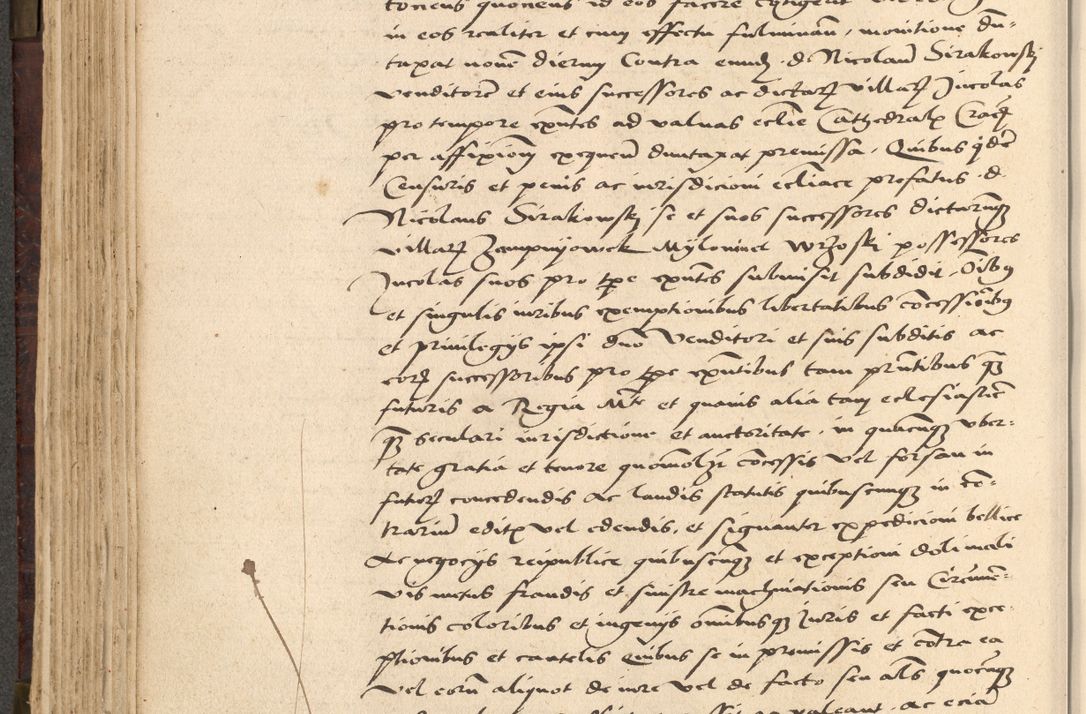 totiens quotiens id eos facere
in eos realiter et cum effectu fulminan, monitione dun-
taxat novē dierum Contra eundē d Nicolaū Sirakowskj
venditorē et eius successores ac dictarꝝ villarꝝ Incolas
pro tempore exn̄tes ad valvas ecclīe Cathedralꝭ Cracꝭ
per affixionē exequen̄ duntaxat premissa, Quibus qͥdē
Censuris et penis ac iurisdicioni eccliāce prefatus d
Nicolaus Sirakowskj se et suos successores dictarumqꝫ
villarꝝ Zempnyowek Mylonicz Wrzoskj possessores
Incolas suos pro tp̄e exn̄tes submisit subdidit, Oībꝰ
et singulis iuribus exemptionibus libertatibus cōcessionībꝰ
et privilegijs ipsi dn̄o Venditori et suis subditis ac
eorꝝ successoribus pro tp̄e exn̄tibus tam prn̄tibus qꝫ
futuris a Regia Mte et quavis alia tam ecclesiasticā
qꝫ seculari iurisdictione et auctoritate, in quacunqꝫ uber-
tate gratia et tenore quomōlꝫ cōcessis vel forsan in
futurꝝ concedendis ac laudis statutis quibuscunqꝫ in cō-
trariū editꝭ vel edendis, et signanter expedicioni bellice
Ac negocijs reipublice quibuscunqꝫ et exceptioni doli mali
vis metus fraudis et sinistre machinationis seu Circūuen-
tionis coloribus et ingenijs omībusqꝫ Iuris et facti exce-
ptionibus et cautelis Quibus se in premissis et cōtra ea
vel eorū aliquot de iure vel de facto seu als̄ quocunqꝫ
valeant, ac